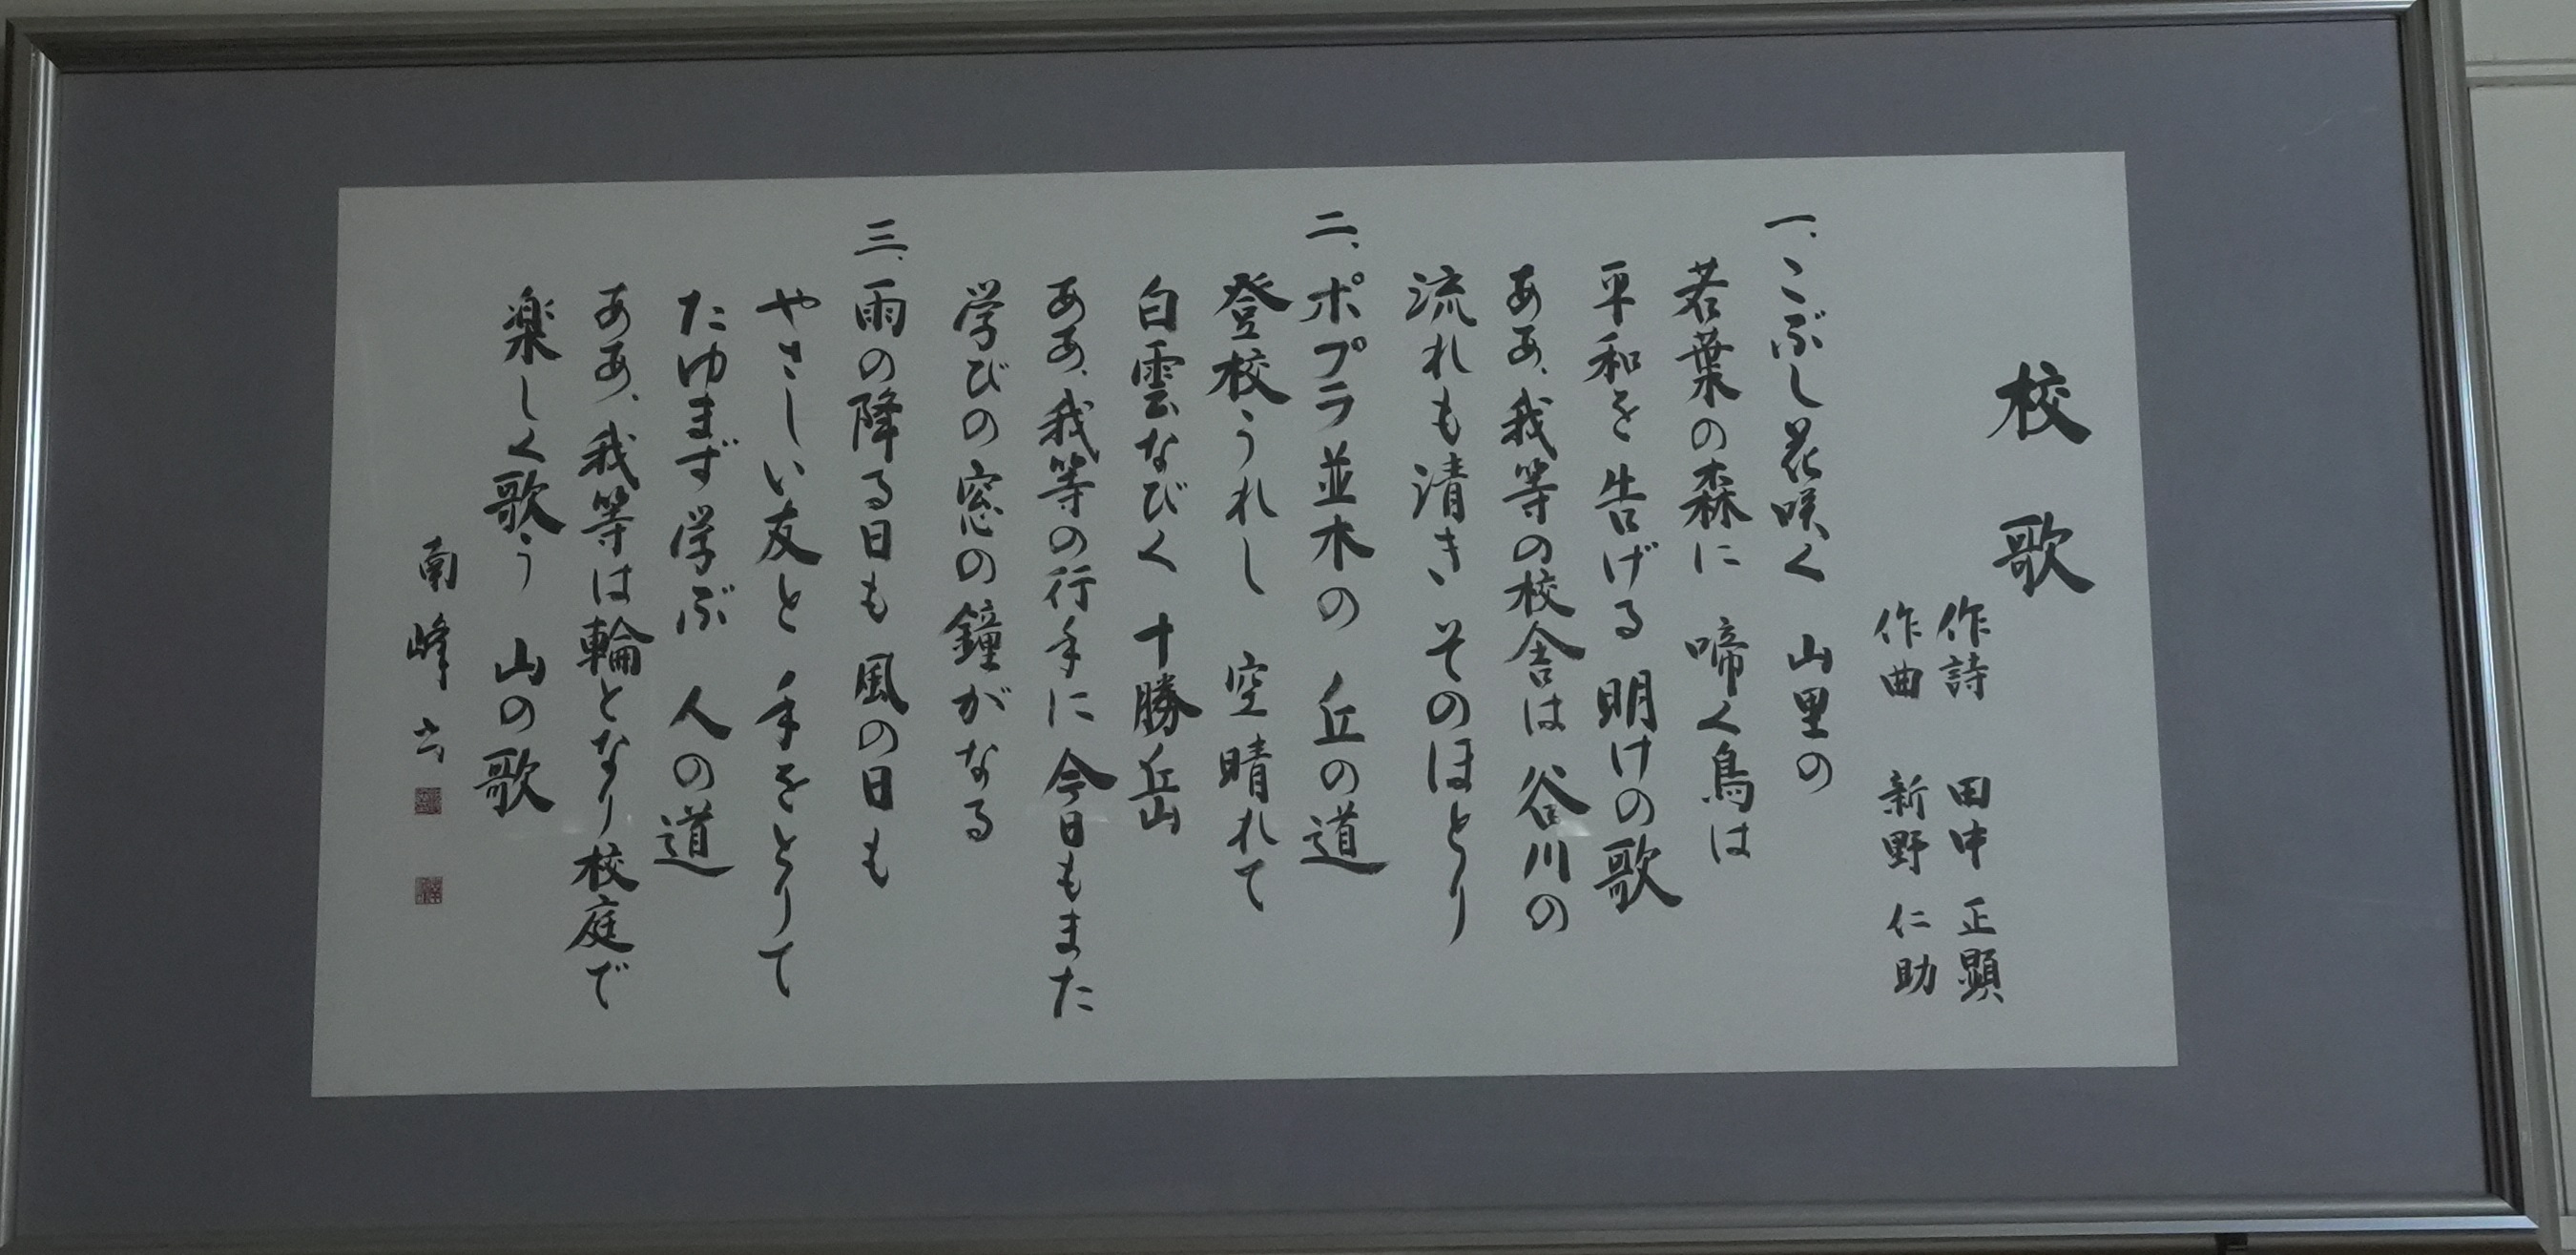 校歌
作詩 田中正顕
作曲 新野仁助
一、こぶし花咲く 山里の
若葉の森に 啼く鳥は
平和を告げる 明けの歌
ああ、我等の校舎は 谷川の
流れも清き そのほとり
二、ポプラ並木の 丘の道
登校うれし 空晴れて
白雲なびく 十勝岳
ああ、我等の行手に 今日もまた
学びの窓の 鐘がなる
三、雨の降る日も 風の日も
やさしい友と 手をとりて
たゆまず学ぶ 人の道
ああ、我等は輪となり 校庭で
楽しく歌う 山の歌
南峰書